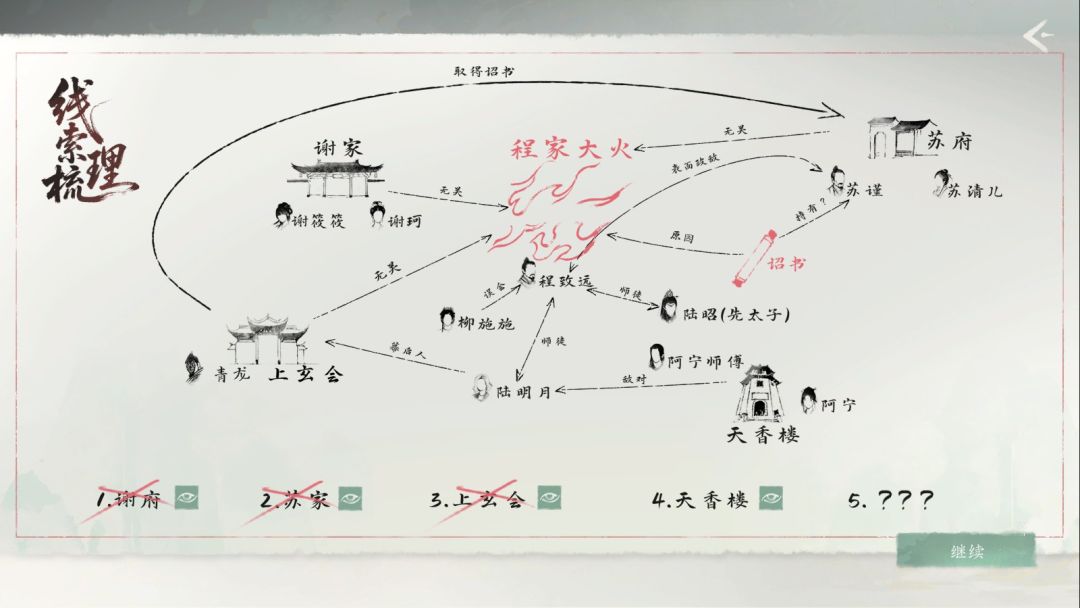 线索梳理
取得诏书
谢家
程家大火
无关
苏府
表面政敌
无关
谢筱筱
谢珂
苏谨
苏清儿
持有?
无关
原因
诏书
程致远
误会
师徒
柳施施
陆昭(先太子)
师徒
幕后人
青龙
上玄会
阿宁师傅
陆明月
敌对
阿宁
天香楼
1.谢府
2.苏家
3.上玄会
4.天香楼
5.???
继续